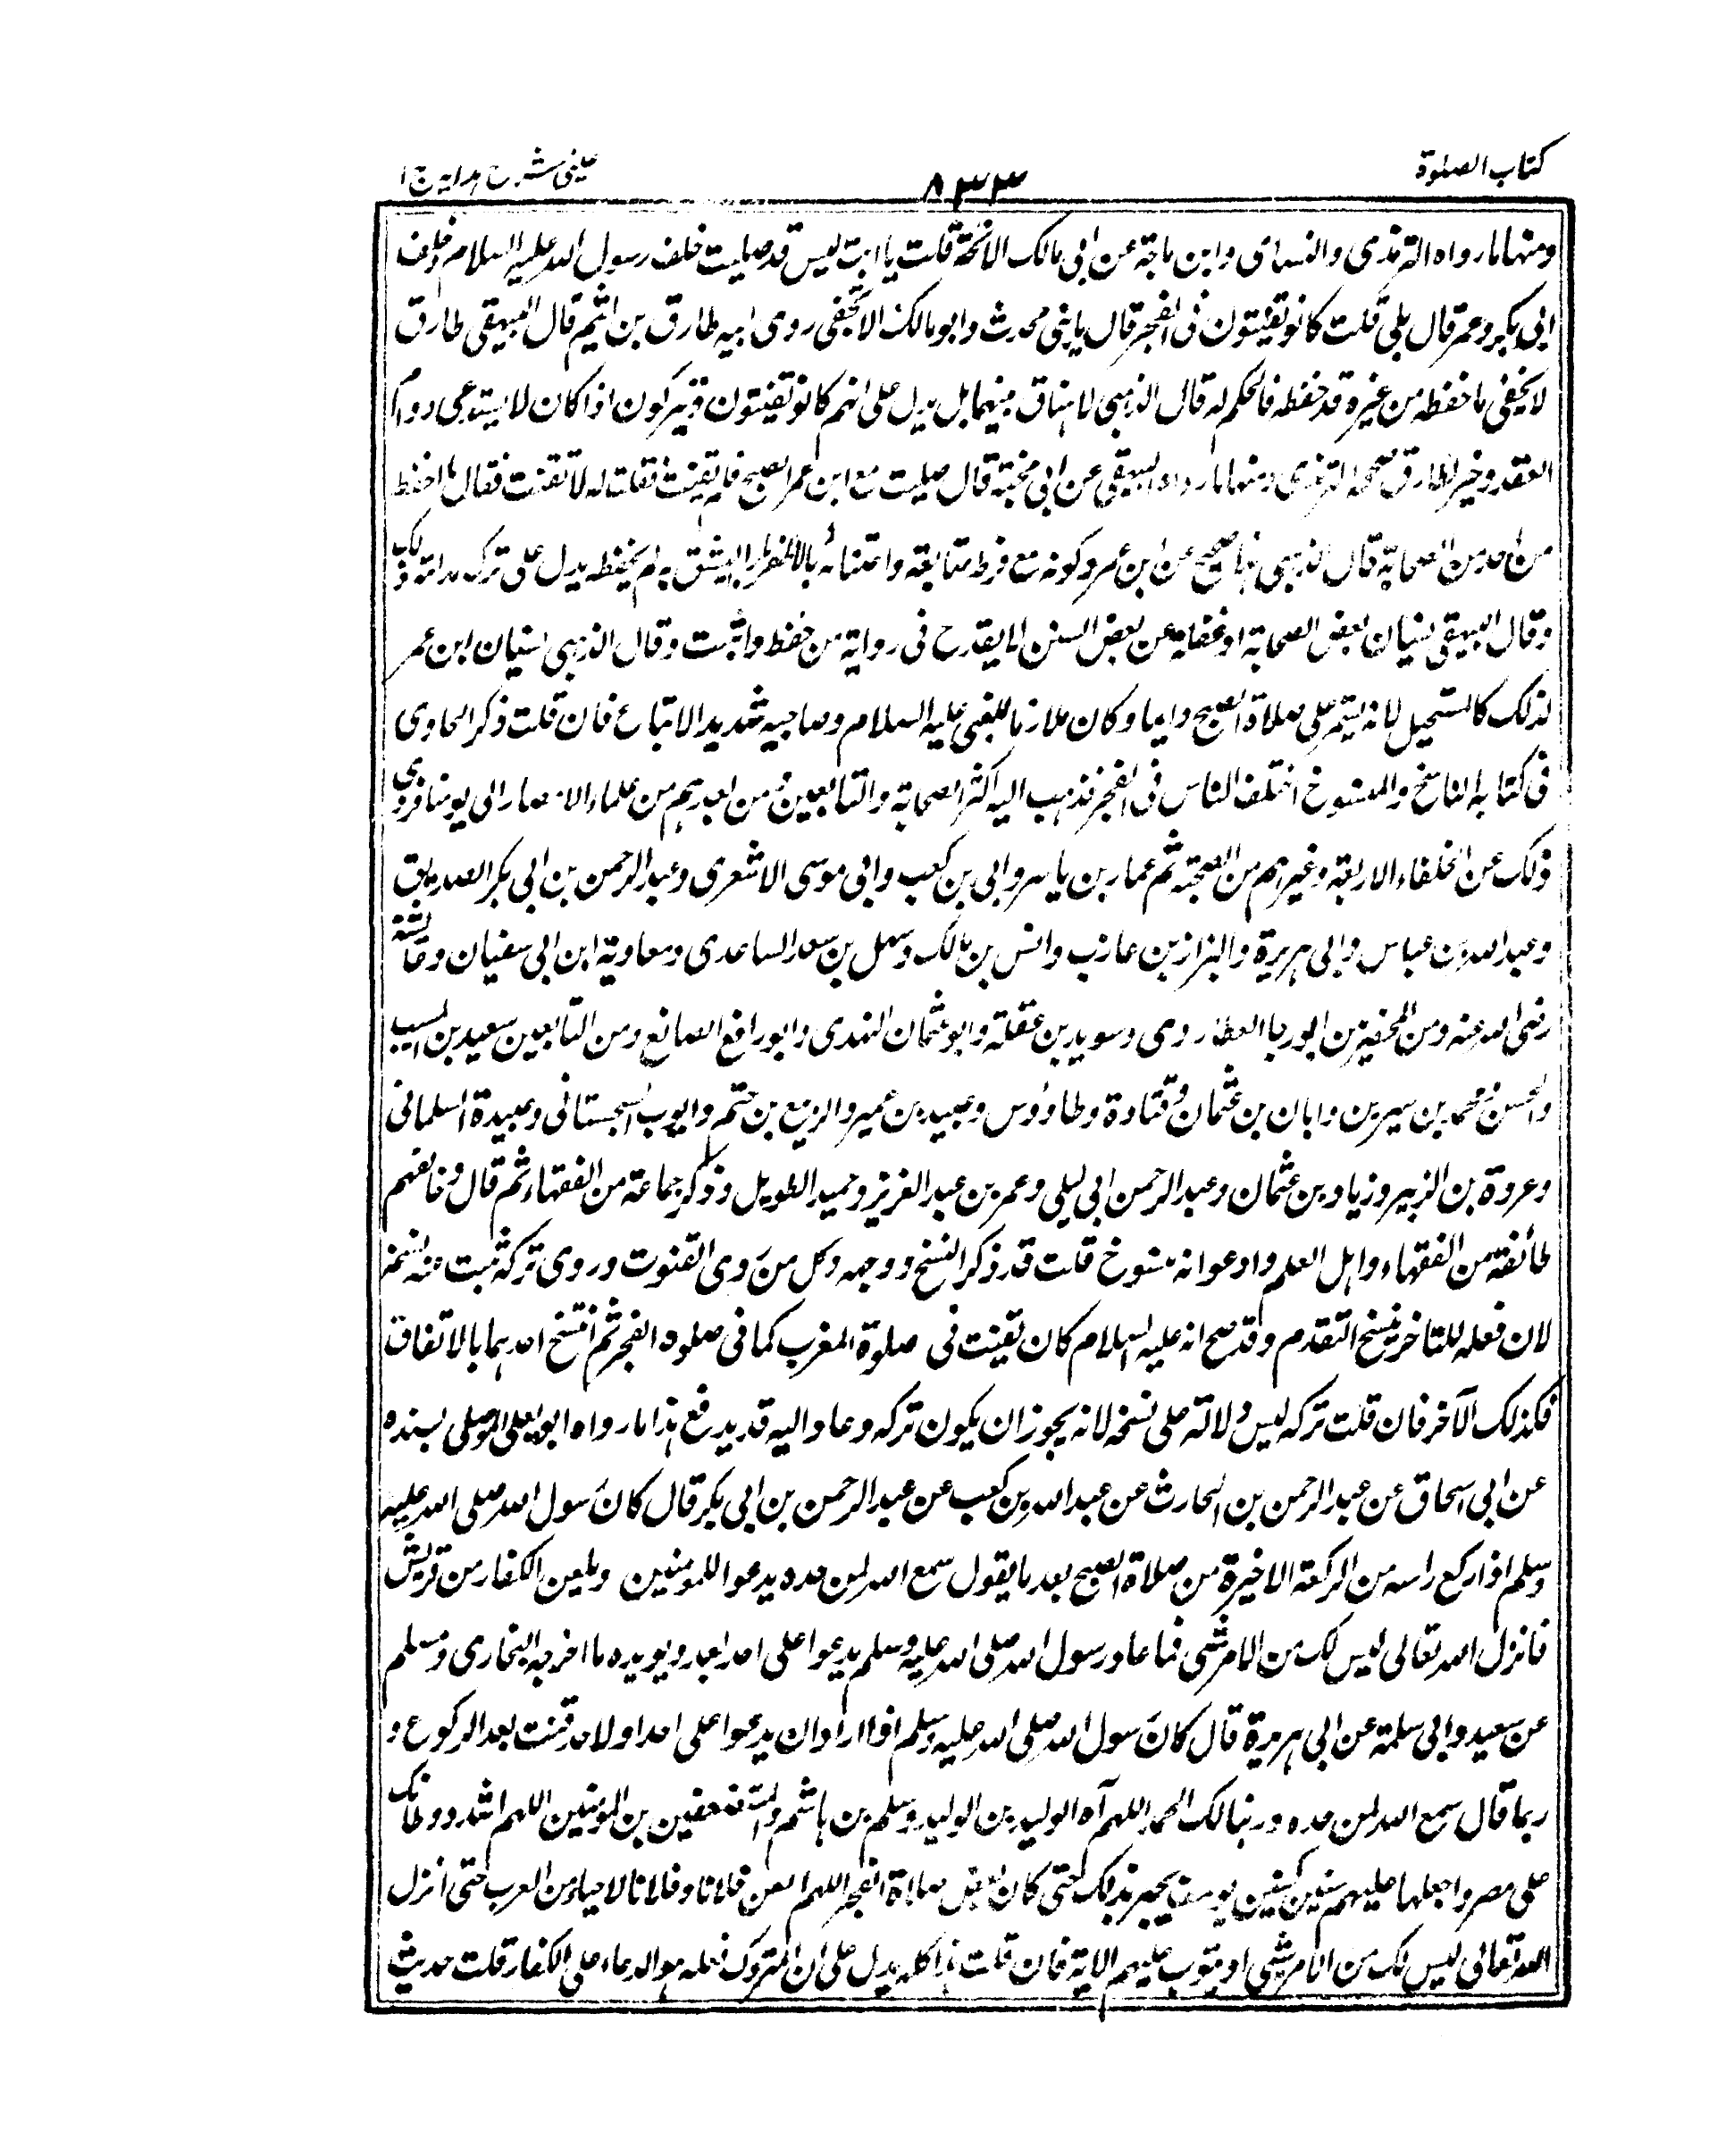 كتاب الصلوة
٨٣٣
عينى شرح هدايه ج ١
ومنها ما رواه الترمذى والنساى وابن ماجة عن ابى مالك قلت يا ابت ليس قد صليت خلف رسول الله عليه السلام وخلف
ابى بكر وعمر قال بلى قلت كانو يقنتون فى الفجر قال يا بنى محدث وابو مالك روى ابيه طارق بن اشيم قال البيهقى طارق
لا يخفى ما حفظه من غيره قد حفظه فالحكم له قال الذهبى بينهما بل يدل على انهم كانو يقنتون ويتركون اذا كان لا يستوعبى دوام
العقد وخبر طارق صححه الترمذى ومنها ما رواه البيهقى عن ابى قال صليت مع ابن عمر الصبح فلم يقنت فقلت له لا تقنت فقال ما احفظ
من احد من الصحابة قال الذهبى هذا صحيح عن ابن عمر وكونه مع فرط متابعة لم يحفظه يدل على ترك مداومة ذلك
وقال البيهقى نسيان بعض الصحابة او غفلة عن بعض السنن لا يقدح فى رواية من حفظ واثبت وقال الذهبى نسيان ابن عمر
لذلك كالمستحيل لانه يستمر على صلاة الصبح دايما وكان ملازما للنبى عليه السلام وصاحبيه شديد الاتباع فان قلت ذكر الحاوى
فى كتابه الناسخ والمنسوخ اختلف الناس فى الفجر فذهب اليه اكثر الصحابة والتابعين ومن بعدهم من علماء الامصار الى يومنا فروى
ذلك عن الخلفاء الاربعة وغيرهم من الصحبته ثم عمار بن ياسر وابى بن كعب وابى موسى الاشعرى وعبد الرحمن بن ابى بكر الصديق
وعبد الله بن عباس وابى هريرة والبزاز بن عازب وانس بن مالك وسهل بن سعد الساعدى ومعاوية ابن ابى سفيان وعائشة
رضى الله عنه ومن المخضرمين ابو رجا العطاروى وسويد بن عقلة وابو عثمان النهدى وابو رافع الصانع ومن التابعين سعيد بن المسيب
والحسن ومحمد بن سيرين وابان بن عثمان وقتادة وطاوؤس وعبيد بن عمير والربيع بن خثيم وايوب السجستانى وعبيدة السلمانى
وعروة بن الزبير وزياد بن عثمان وعبد الرحمن ابى ليلى وعمر بن عبد العزيز وحميد الطويل وذكر جماعة من الفقهاء ثم قال وخالفهم
طائفة من الفقهاء واهل العلم وادعوا انه منسوخ قلت قد ذكر النسخ ووجهه وكل من روى القنوت وروى تركه ثبت عنه
لان فعله للمتاخر ينسخ المتقدم وقد صح انه عليه السلام كان يقنت فى صلوة المغرب كما فى صلوه الفجر ثم انتسخ احدهما بالاتفاق
فكذلك الآخر فان قلت تركه ليس دلالة على نسخه لانه يجوز ان يكون تركه وعاد اليه قد يدفع هذا ما رواه ابو يعلى الموصلى بسنده
عن ابى اسحاق عن عبد الرحمن بن الحارث عن عبد الله بن كعب عن عبد الرحمن بن ابى بكر قال كان رسول الله صلى الله عليه
وسلم اذا ركع راسه من الركعة الاخيرة من صلاة الصبح بعد ما يقول سمع الله لمن حمده يدعوا للمومنين ويلعن الكفار من قريش
فانزل الله تعالى ليس لك من الامر شى فما عاد رسول الله صلى الله عليه وسلم يدعوا على احد بعد ويويده ما اخرجه البخارى ومسلم
عن سعيد وابى سلمة عن ابى هريرة قال كان رسول الله صلى الله عليه وسلم اذا اراد ان يدعوا على احد او لاحد قنت بعد الركوع و
ربما قال سمع الله لمن حمده وربنا لك الحمد اللهم الوليد بن الوليد وسلم بن هاشم والمستضعفين من المومنين اللهم اشدد وطاتك
على مضر واجعلها عليهم سنين كسنين يوسف يجهر بذلك حتى كان بعض صلاة الفجر اللهم العن فلانا وفلانا لاحياء من العرب حتى انزل
الله تعالى ليس لك من الامر شى او يتوب عليهم الاية فان قلت هذا كله يدل على ان المتروك فعله هو الدعاء على الكفار قلت حديث